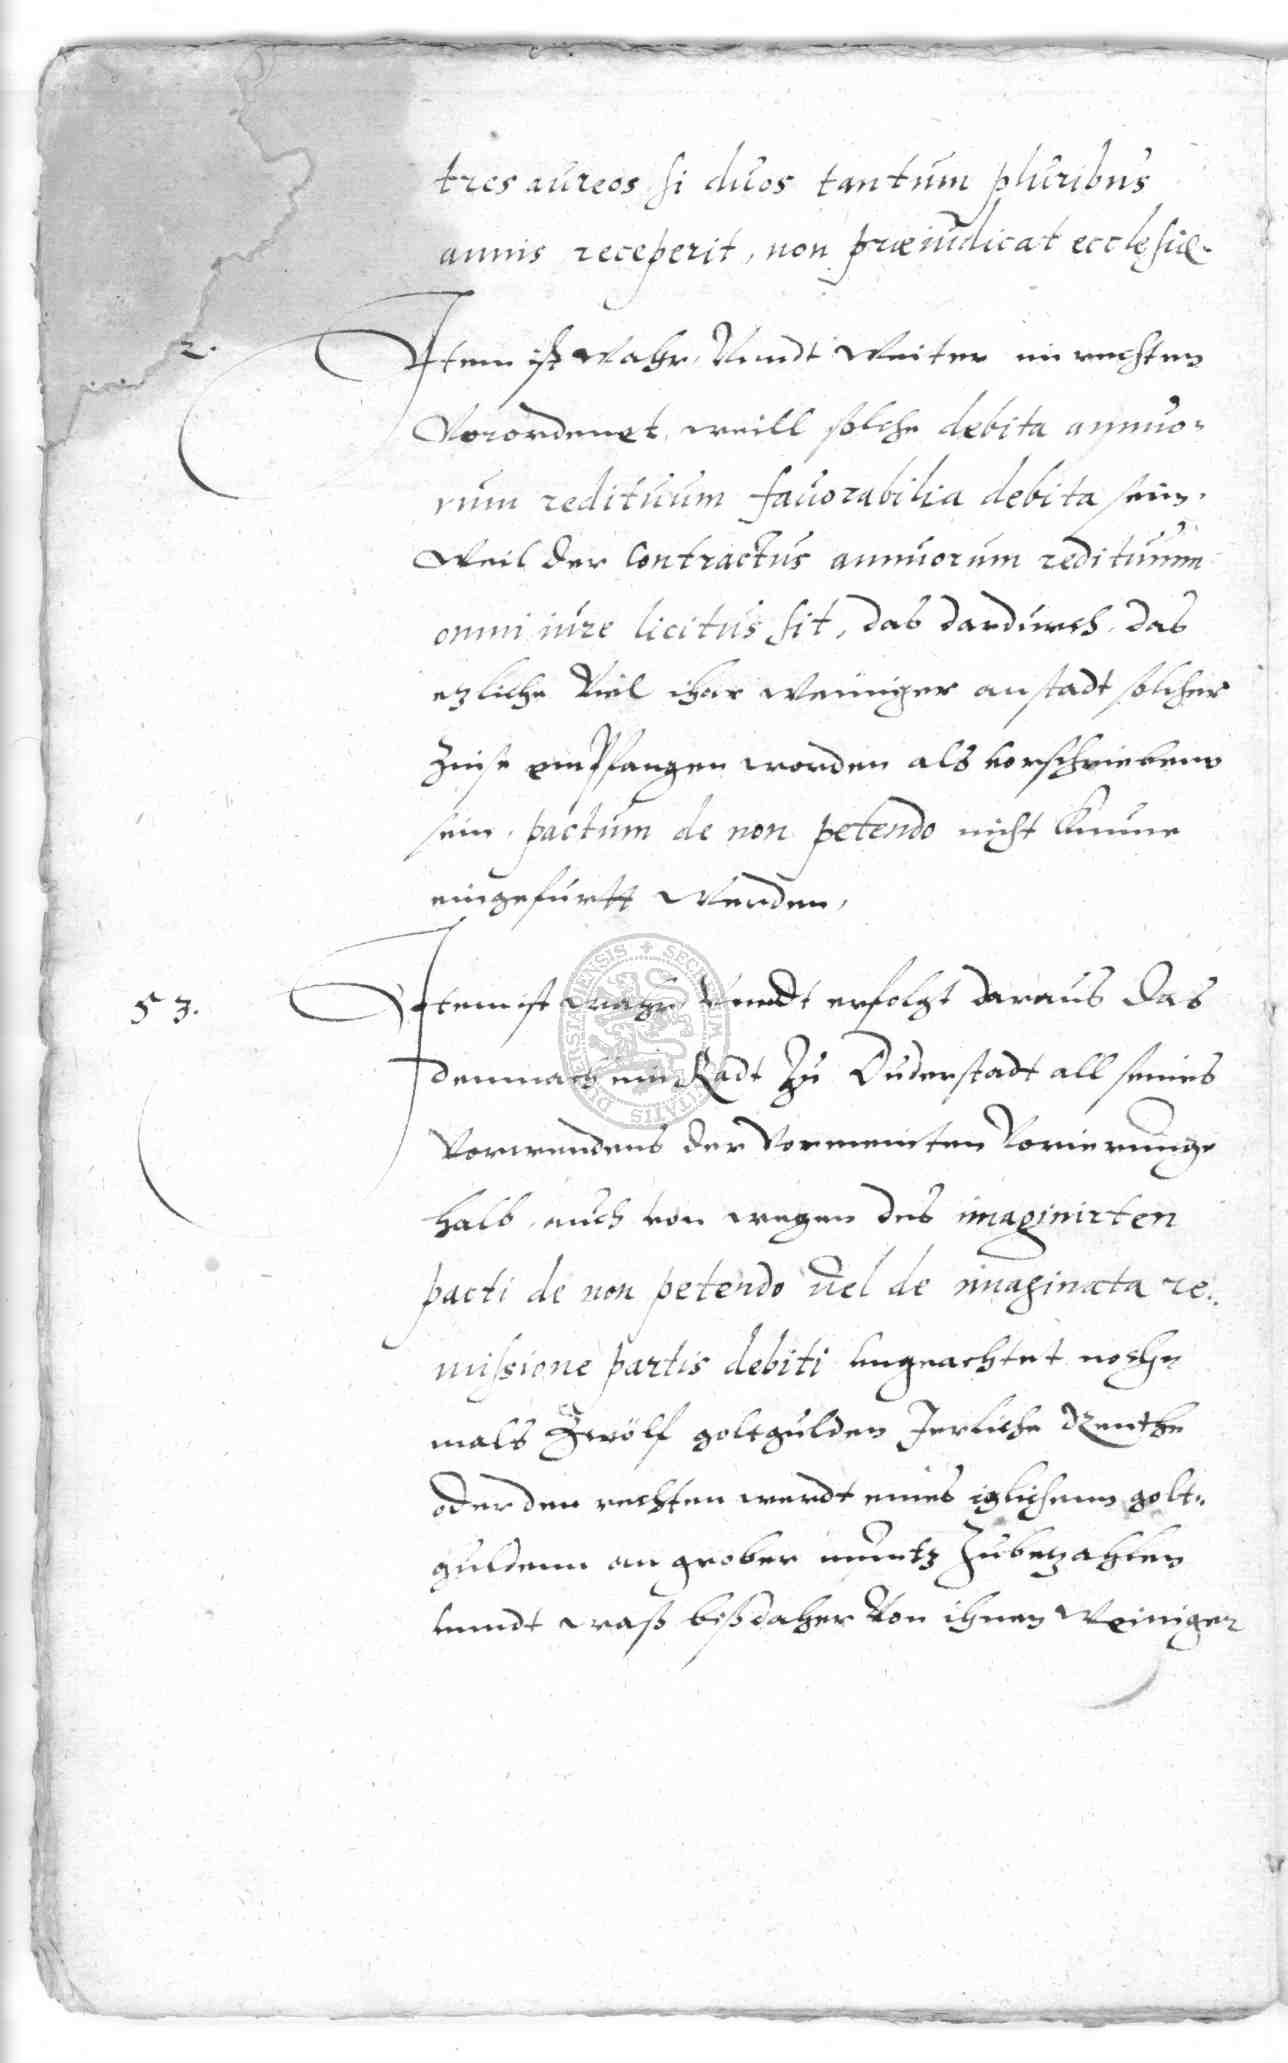 tres aureos si duos tantum pluribus
annis receperit, non præiudicat ecclesiæ.
2. Item ist Wahr, Vnndt Weiter im rechten
Vorordenet, weill solche debita annuo-
rum redituum fauorabilia debita sein,
Weil der Contractus annuorum redituum
omni iure licitus sit, das dardurch, das
etzliche Viel ihar Weiniger anstadt solcher
Zinse empfangen worden als vorschriebenn
sein, pactum de non petendo nicht Kunne
eingefürtt Werden,
53. Item ist Wahr Vnndt erfolgt daraus das
demnach ein Radt Zu Duderstadt all seines
Vorwendens der Vormeinten Vorierunge
halb, auch von wegen des imaginirten
pacti de non petendo vel de imaginata re-
missione partis debiti vngeachtet noche
mals Zwölf goltgulden Jerliche Renthe
oder den rechten werdt eines iglichenn golt-
guldenn an grober müntz Zubezahlen
vnndt waß bißdaher Von ihnen Weiniger
SECRETUM CIVITATIS DUDERSTADIENSIS